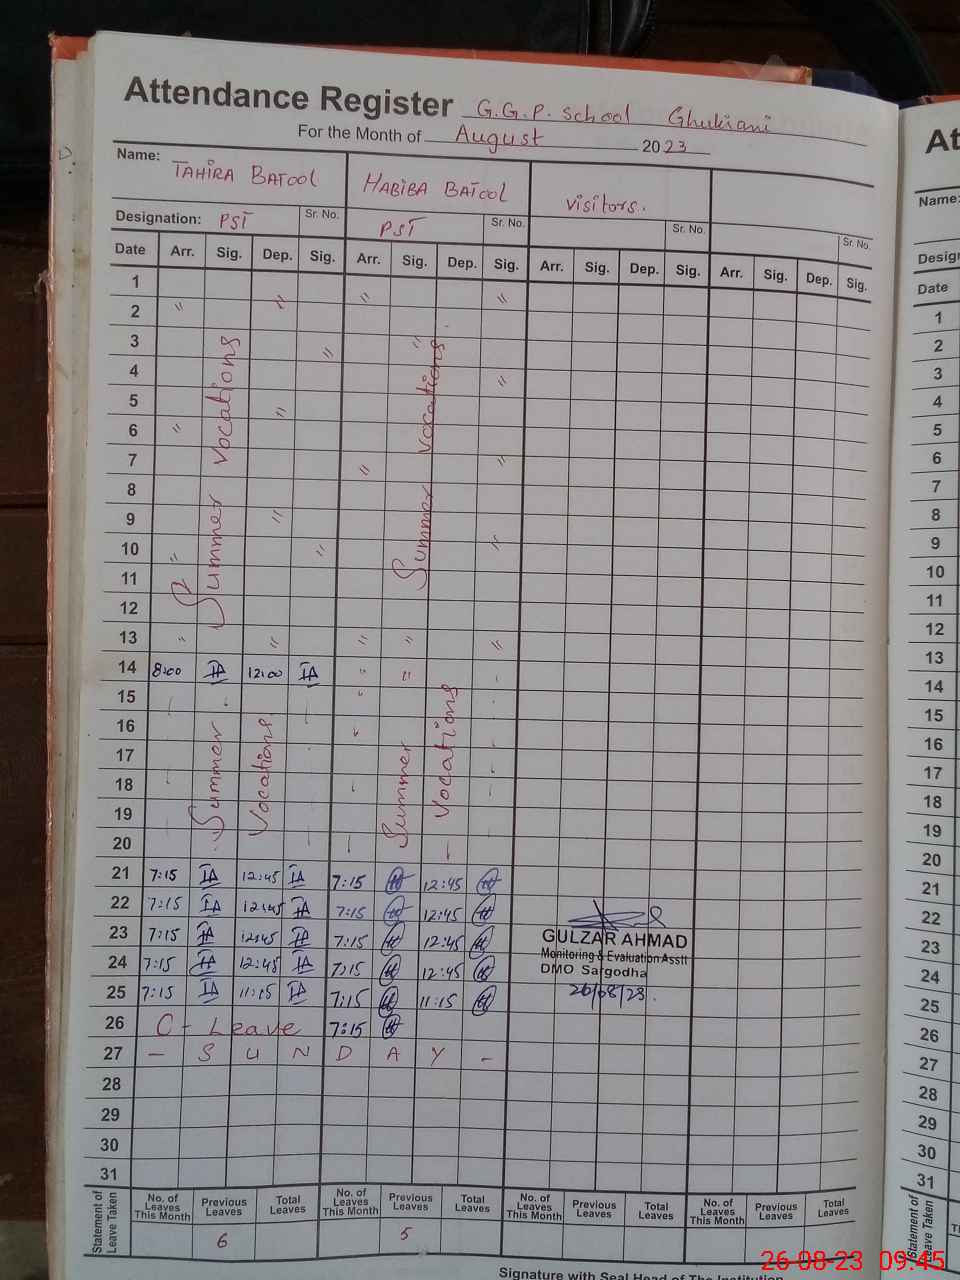 Attendance Register G.G.P. School Ghukiani
For the Month of August 2023
Name: TAHIRA BATOOL HABIBA BATOOL Visitors.
Designation: PST Sr. No. PST Sr. No. Sr. No. Sr. No.
Date Arr. Sig. Dep. Sig. Arr. Sig. Dep. Sig. Arr. Sig. Dep. Sig. Arr. Sig. Dep. Sig.
1
2 〃 〃 〃 〃
3 〃 〃
4 〃
5 〃
6 〃
7 〃 〃
8
9 〃
10 〃 〃 〃
11
12
Summer Vocations Summer Vocations
13 〃 〃 〃 〃 〃
14 8:00 IA 12:00 IA 〃 〃
15
16
17
18
19
20
Summer Vocations. Summer Vocations
21 7:15 IA 12:45 IA 7:15 H 12:45 H
22 7:15 IA 12:45 IA 7:15 H 12:45 H
23 7:15 IA 12:45 IA 7:15 H 12:45 H
24 7:15 IA 12:45 IA 7:15 H 12:45 H
25 7:15 IA 11:15 IA 7:15 H 11:15 H
GULZAR AHMAD
Monitoring & Evaluation Asstt
DMO Sargodha
26/08/23.
26 C - Leave 7:15 H
27 - S U N D A Y -
28
29
30
31
Statement of Leave Taken
No. of Leaves This Month Previous Leaves Total Leaves No. of Leaves This Month Previous Leaves Total Leaves No. of Leaves This Month Previous Leaves Total Leaves No. of Leaves This Month Previous Leaves Total Leaves
6 5
Signature with Seal Head of The Institution
At
Name:
Design
Date
1
2
3
4
5
6
7
8
9
10
11
12
13
14
15
16
17
18
19
20
21
22
23
24
25
26
27
28
29
30
31
26-08-23 09:45